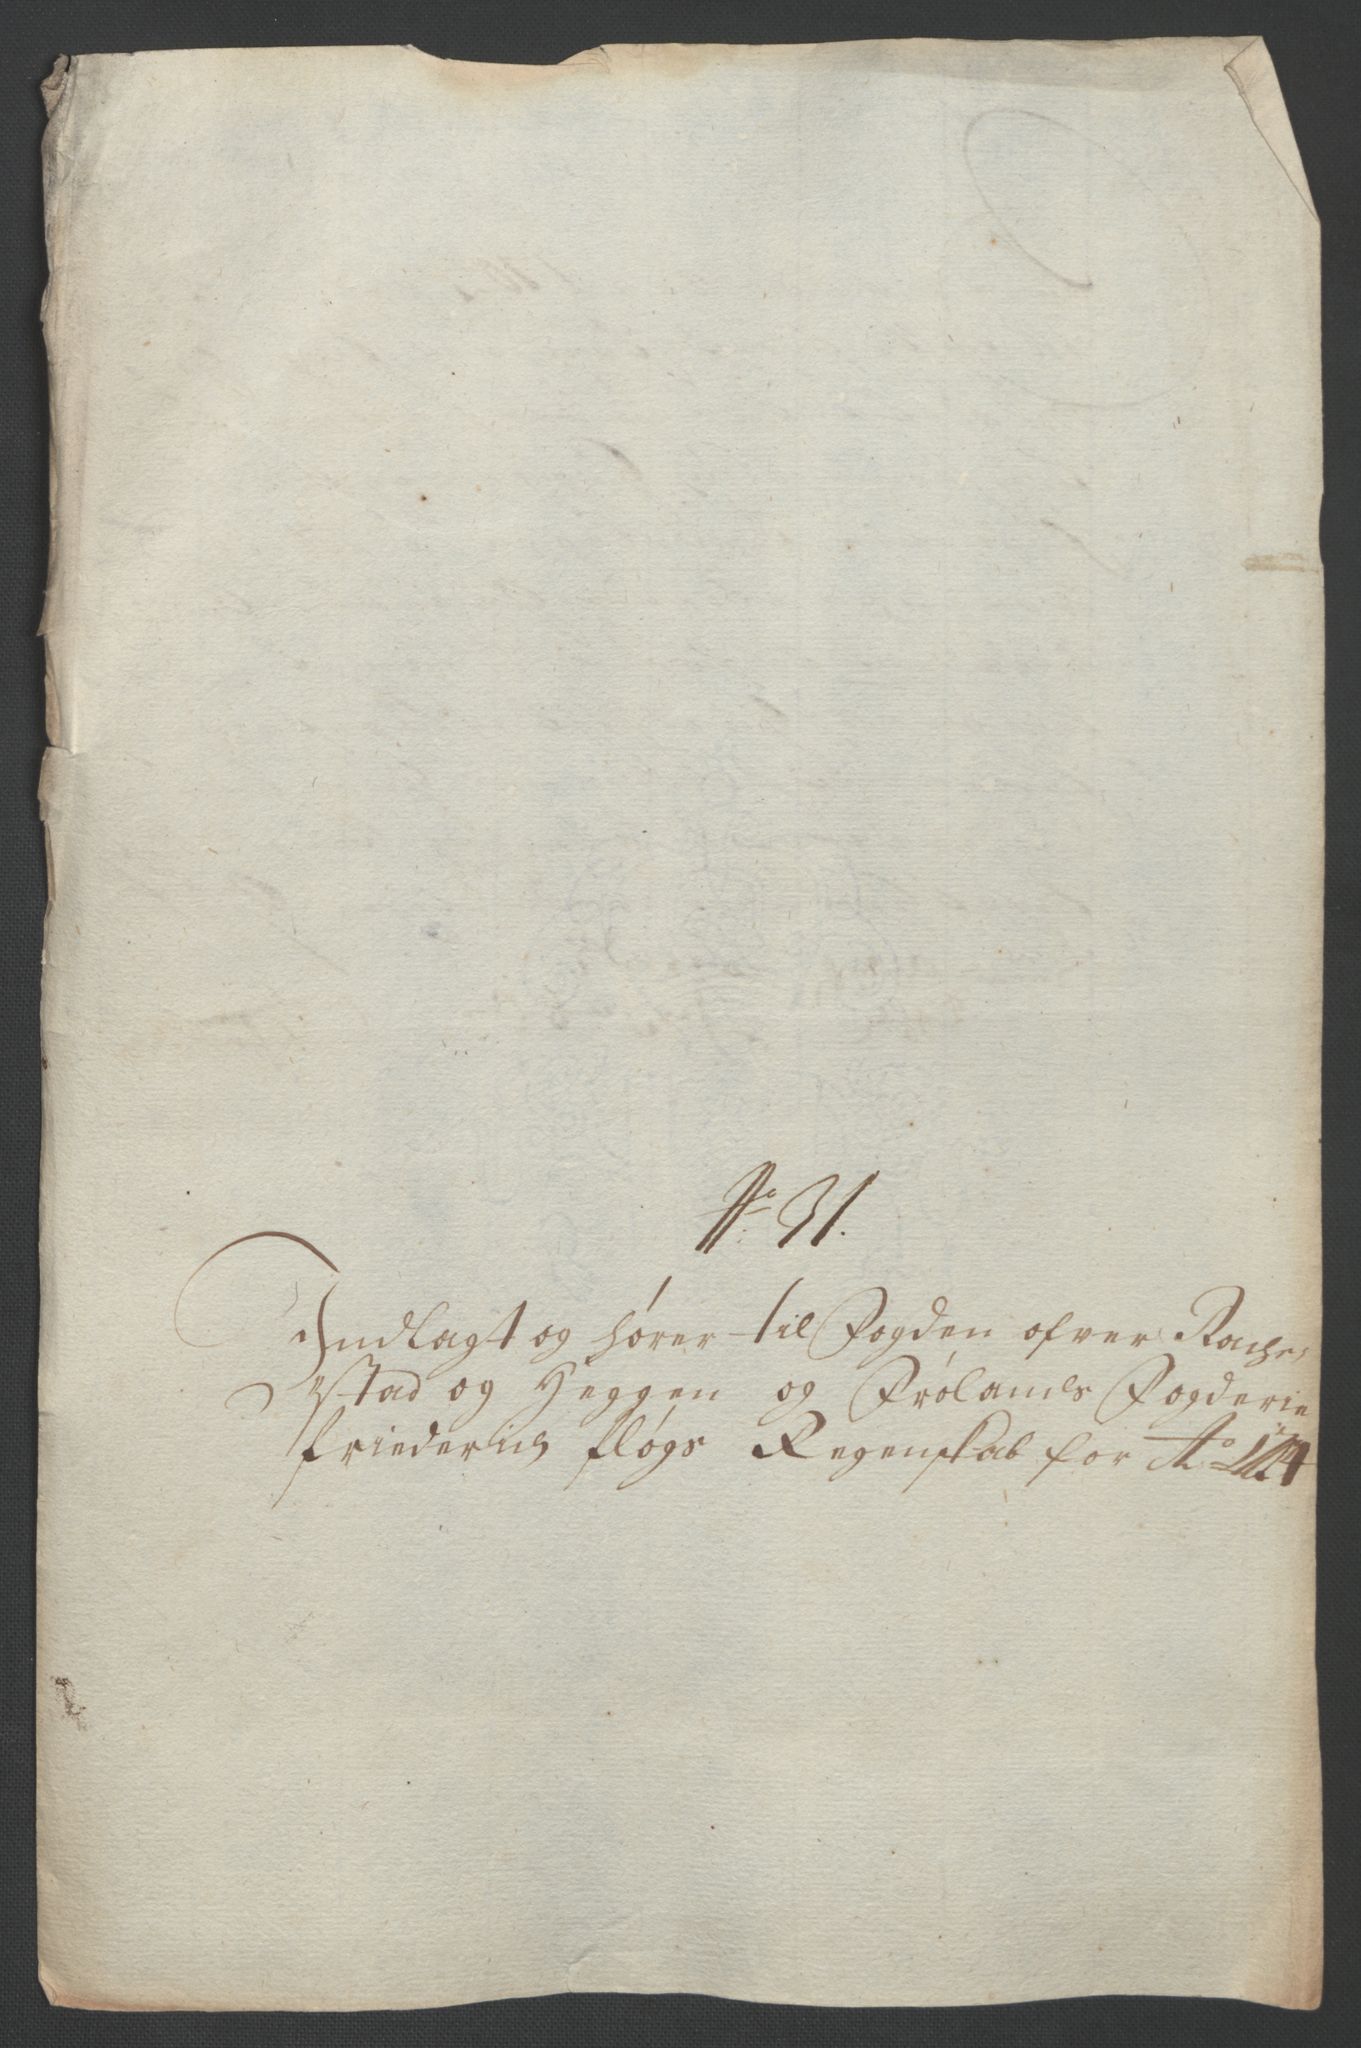 No. 31.
Indlagt og hører til Fogden ofver Rache-
stad og Heggen og Frølands Fogderie
Friederich Fløgs Regenskab for Ao